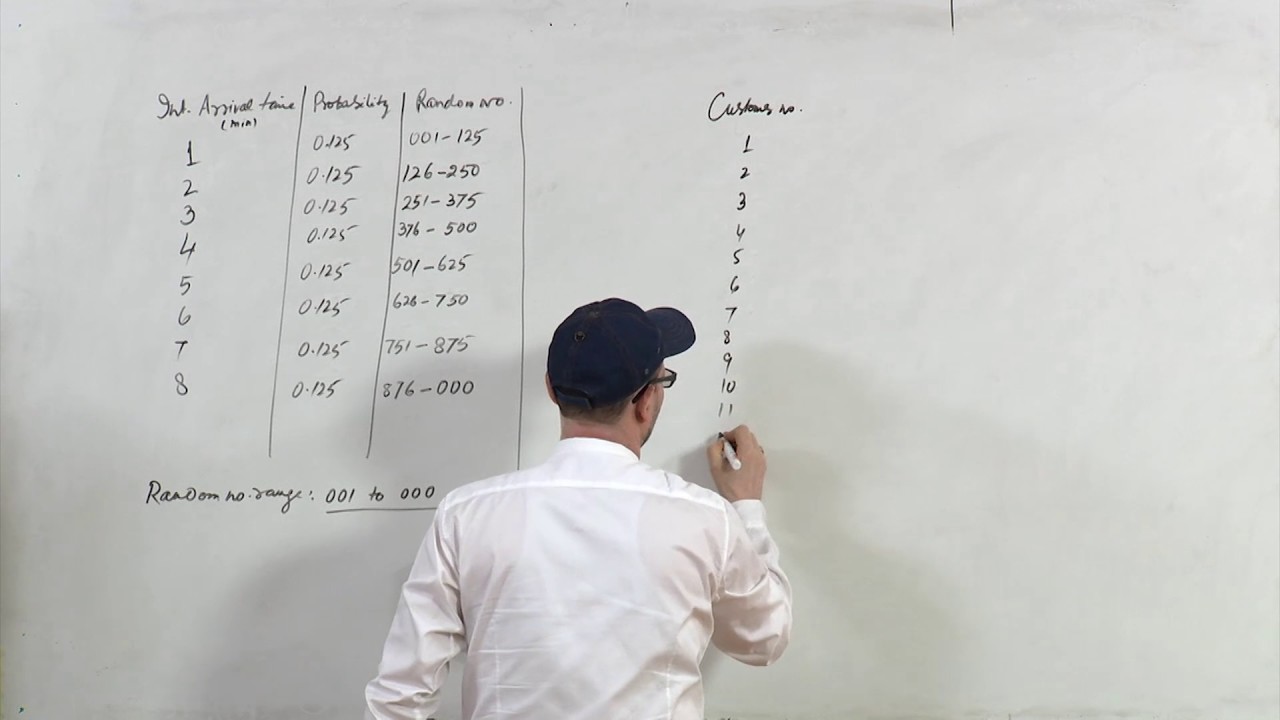 Int. Arrival time | Probability | Random no.
(min)
1 0.125 001-125
2 0.125 126-250
3 0.125 251-375
4 0.125 376-500
5 0.125 501-625
6 0.125 626-750
7 0.125 751-875
8 0.125 876-000
Random no. range: 001 to 000
Customer no.
1
2
3
4
5
6
7
8
9
10
11